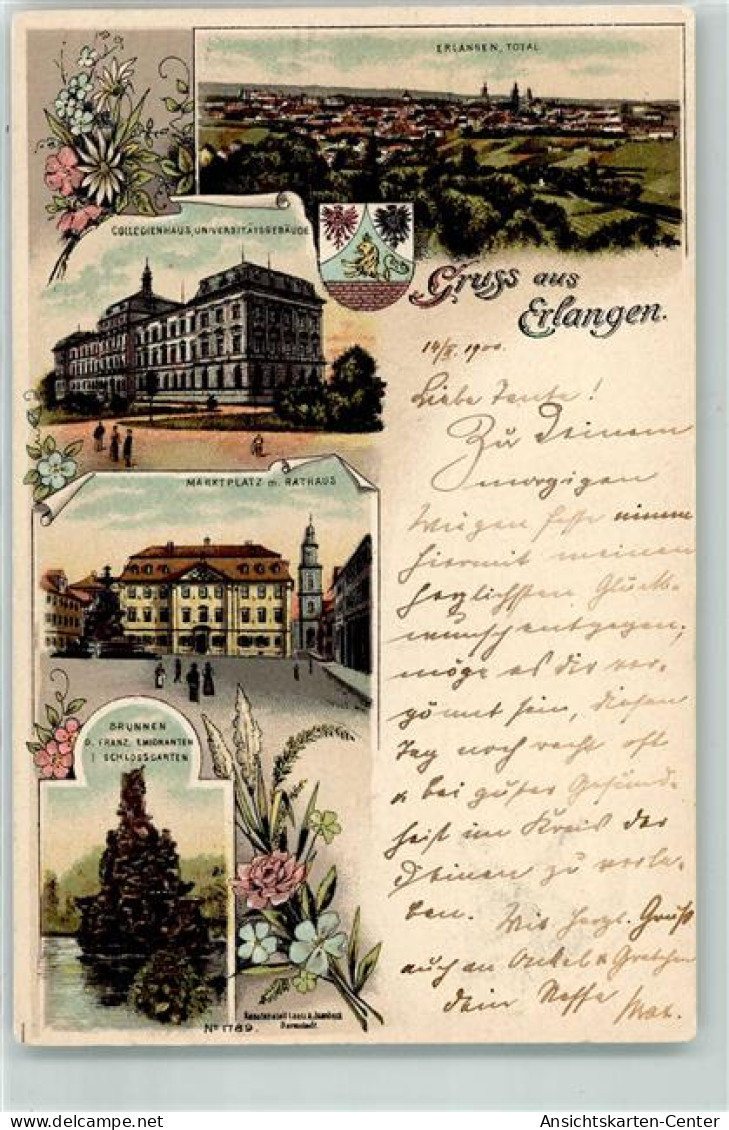 ERLANGEN, TOTAL
COLLEGIENHAUS, UNIVERSITÄTSGEBÄUDE
Gruss aus
Erlangen.
1900.
Liebe Tante!
Zu Deinem
morgigen
Wiegenfeste nimm
hiermit meinen
herzlichsten Glück-
wunsch entgegen;
möge es dir ver-
gönnt sein, diesen
Tag noch recht oft
& bei guter Gesund-
heit im Kreis der
Deinen zu verle-
ben. Mit herzl. Gruß
auch an Onkel & Gretchen
dein Neffe Max.
MARKTPLATZ m. RATHAUS
BRUNNEN
D. FRANZ. EMIGRANTEN
I SCHLOSSGARTEN
No 1789.
Kunstanstalt Lautz & Isenbeck
Darmstadt.
Ansichtskarten-Center